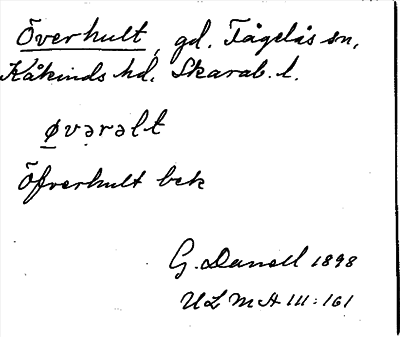 Överhult, gd. Fågelås sn,
Kåkinds hd. Skarab. l.
øvərəlt
Öfverhult bek
G. Danell 1898
ULMA III:161